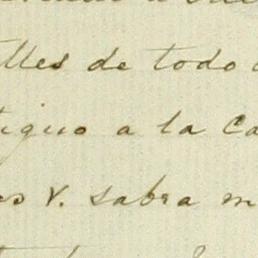 lles de todo
iguo a la Ca
os V. sabra m